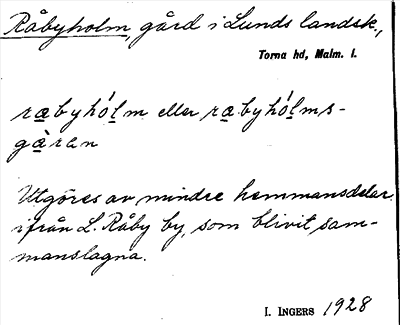 Råbyholm, gård i Lunds landsk.,
Torna hd, Malm. l.
ræbyhól̲m eller ræbyhól̲ms-
gàran
Utgöres av mindre hemmansdelar
ifrån L. Råby by, som blivit sam-
manslagna.
I. INGERS 1928